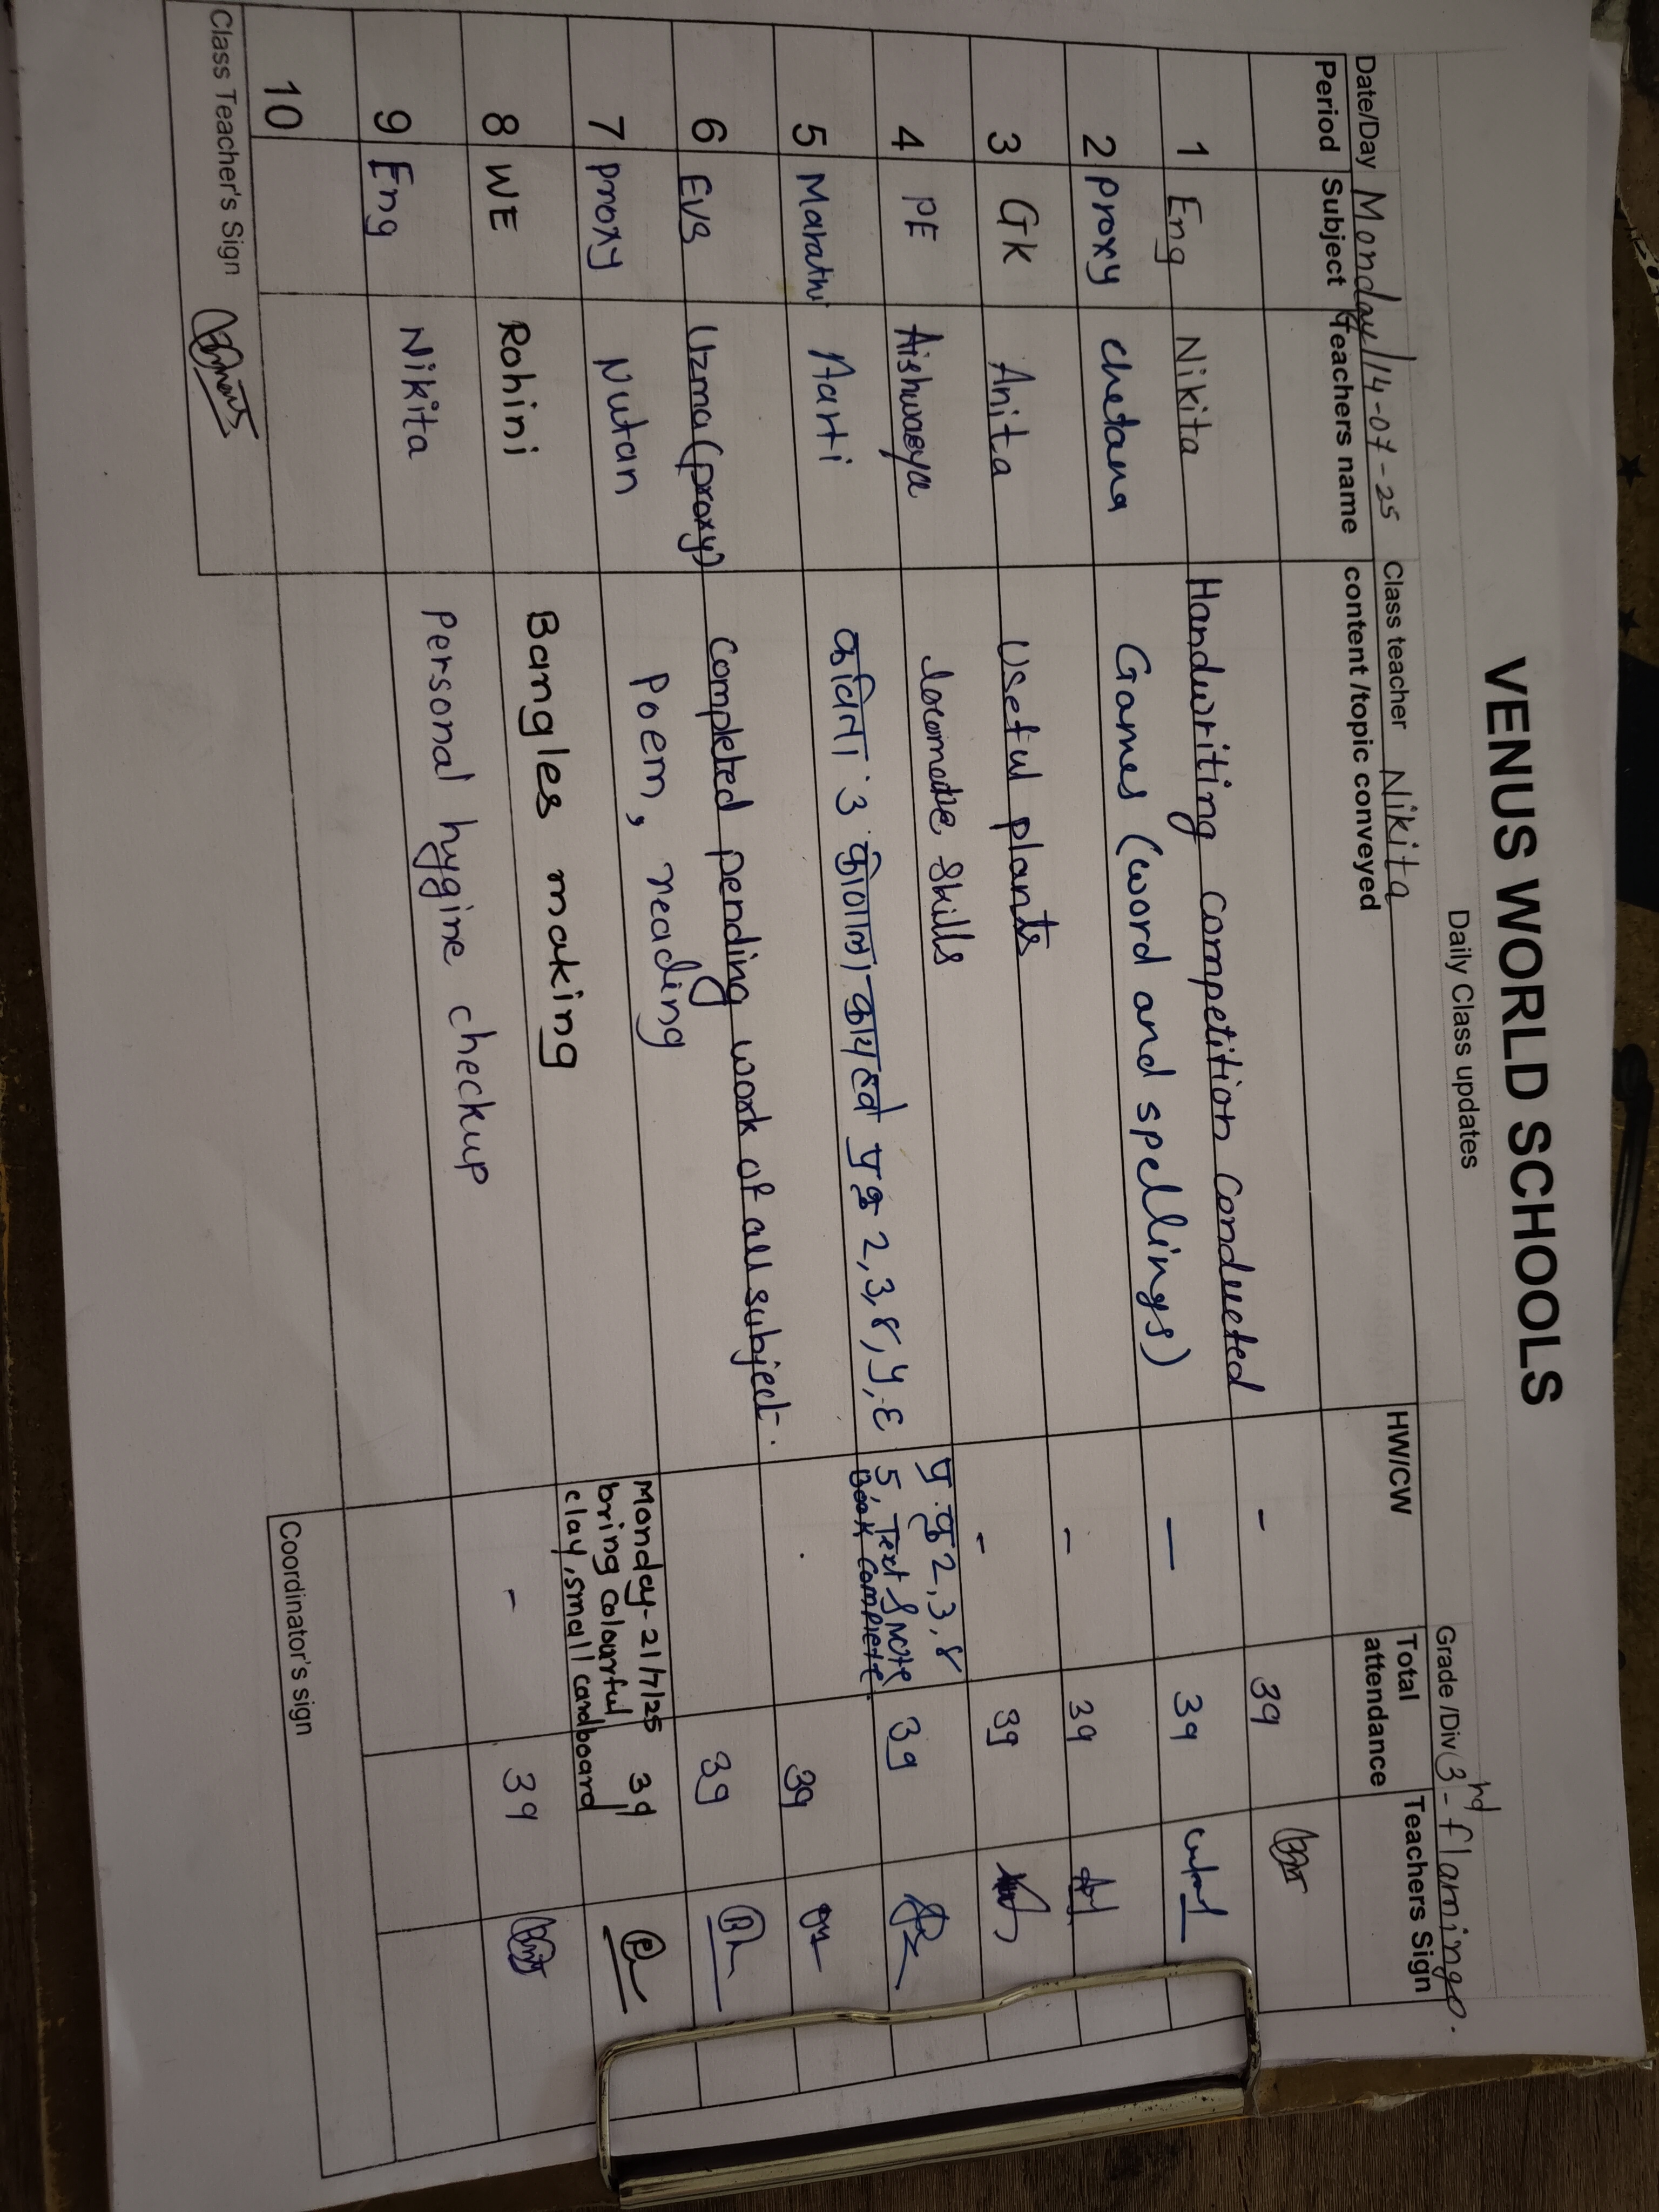 VENUS WORLD SCHOOLS
Daily Class updates
Date/Day Monday/14-07-25 Class teacher Nikita Grade /Div (3rd - flamingo.
Period Subject Teachers name content /topic conveyed HW/CW Total attendance Teachers Sign
1 Eng Nikita Handwriting competition conducted - 39
2 Proxy chetana Games (word and spellings) - 39
3 GK Anita Useful plants - 39
4 PE Aishwarya locomotive skills - 39
5 Marathi Aarti कविता 3 कोणाला काय हवे पृ क्र 2, 3, ४, ५, ६ पृ. क्र 2, 3, ४
5, Text & note
Book complete 39
6 EVS Uzma (proxy) Completed pending work of all subject. 39
7 Proxy Nutan Poem, reading 39
8 WE Rohini Bangles making Monday - 21/7/25
bring colourful
clay, small cardboard 39
9 Eng Nikita Personal hygine checkup - 39
10
Class Teacher's Sign Coordinator's sign